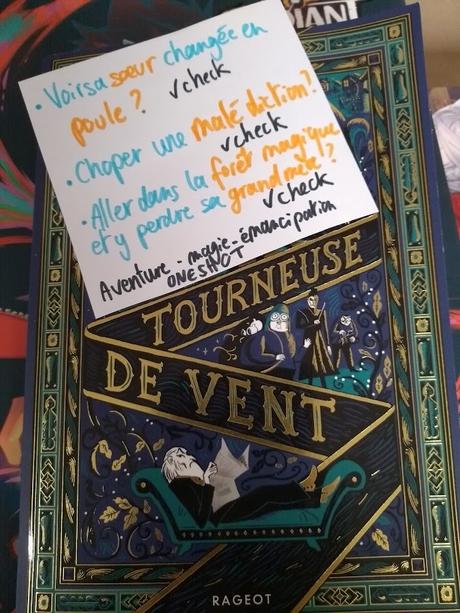 DIANT
• Voir sa sœur changée en
poule ? √check
• Choper une malédiction?
√check
• Aller dans la forêt magique
et y perdre sa grand mère ?
√check
Aventure - magie - émancipation
ONESHOT
TOURNEUSE
DE VENT
RAGEOT